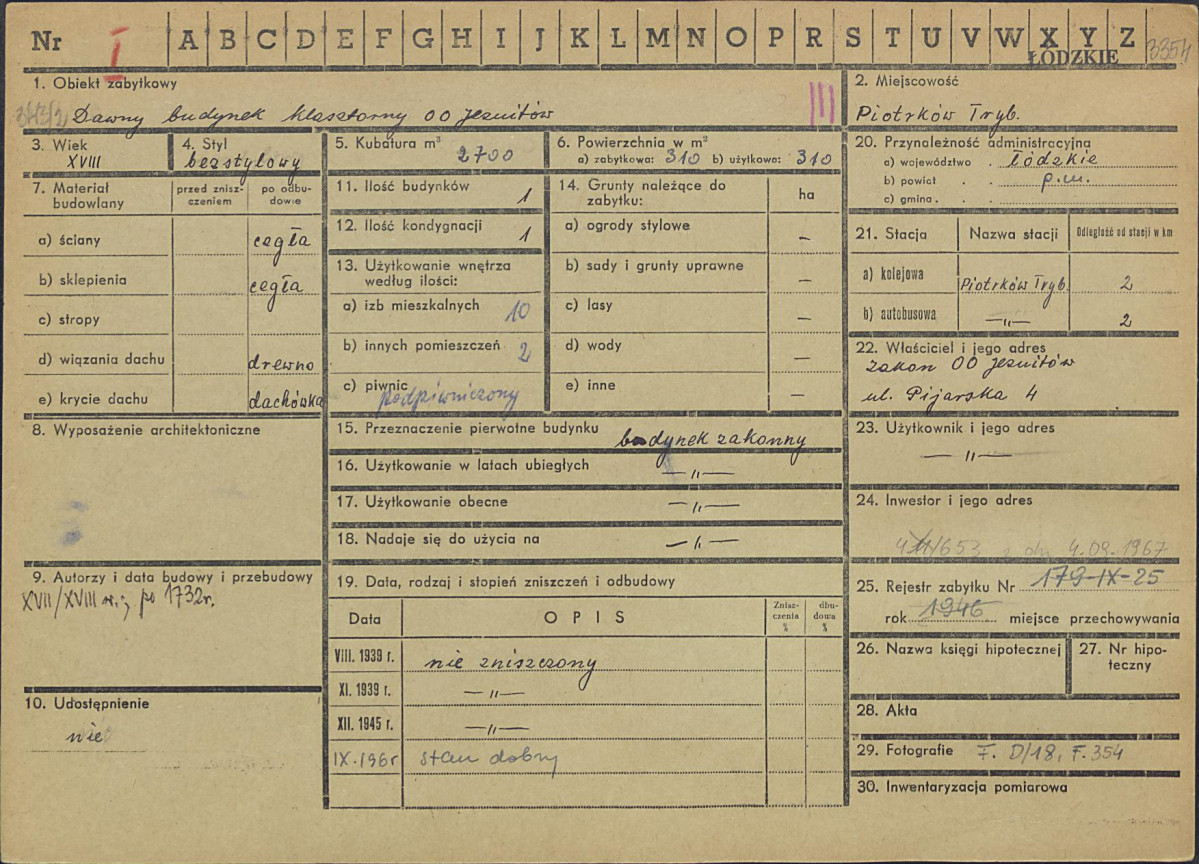 Nr I A B C D E F G H I J K L M N O P R S T U V W X Y Z 3354
ŁÓDZKIE
1. Obiekt zabytkowy
Dawny budynek klasztorny OO Jezuitów III
2. Miejscowość
Piotrków Tryb.
3. Wiek
XVIII
4. Styl
bezstylowy
5. Kubatura m³
2700
6. Powierzchnia w m²
a) zabytkowa: 310 b) użytkowa: 310
20. Przynależność administracyjna
a) województwo . łódzkie
b) powiat . . p.m.
c) gmina . . .
7. Materiał budowlany
przed znisz-
czeniem
po odbu-
dowie
a) ściany cegła
b) sklepienia cegła
c) stropy
d) wiązania dachu drewno
e) krycie dachu dachówka
11. Ilość budynków
1
12. Ilość kondygnacji
1
13. Użytkowanie wnętrza
według ilości:
a) izb mieszkalnych 10
b) innych pomieszczeń 2
c) piwnic
podpiwniczony
14. Grunty należące do
zabytku:
ha
a) ogrody stylowe –
b) sady i grunty uprawne –
c) lasy –
d) wody –
e) inne –
21. Stacja Nazwa stacji Odległość od stacji w km
a) kolejowa Piotrków Tryb. 2
b) autobusowa —„— 2
22. Właściciel i jego adres
Zakon OO Jezuitów
ul. Pijarska 4
8. Wyposażenie architektoniczne
15. Przeznaczenie pierwotne budynku budynek zakonny
16. Użytkowanie w latach ubiegłych —„—
17. Użytkowanie obecne —„—
18. Nadaje się do użycia na —„—
23. Użytkownik i jego adres
—„—
24. Inwestor i jego adres
/653 z dn. 4.09.1967
9. Autorzy i data budowy i przebudowy
XVII/XVIII w.; po 1732r.
10. Udostępnienie
nie
19. Data, rodzaj i stopień zniszczeń i odbudowy
Data OPIS
Znisz-
czenia
%
dbu-
dowa
%
VIII. 1939 r. nie zniszczony
XI. 1939 r. —„—
XII. 1945 r. —„—
IX.196r stan dobry
25. Rejestr zabytku Nr 179-IX-25
rok 1946 miejsce przechowywania
26. Nazwa księgi hipotecznej
27. Nr hipo-
teczny
28. Akta
29. Fotografie F. D/18, F. 354
30. Inwentaryzacja pomiarowa